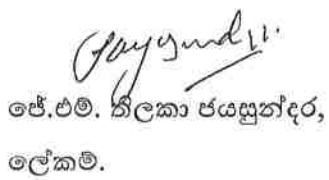 ජේ.එම්. තිලකා ජයසුන්දර,
ලේකම්.